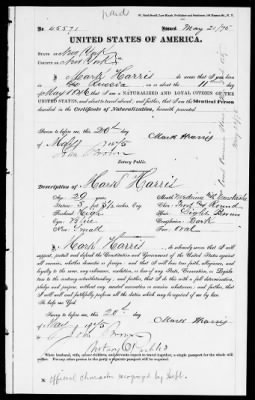 paid
No. 45571 Issued May 21/75
UNITED STATES OF AMERICA.
STATE OF New York
COUNTY OF New York
I, Mark Harris do swear that I was
born in on or about the 11th day of
May 1846; that I am a NATURALIZED AND LOYAL CITIZEN OF THE
UNITED STATES, and about to travel abroad; and further, that I am the Identical Person
described in the Certificate of Naturalization, herewith presented
Sworn to before me, this 20th day
of May 1875
Mark Harris
Notary Public.
Description of Mark Harris
Age: 29 years
Stature: 5 feet 8 1/2 inches, Eng.
Forehead: High
Eyes: Blue
Nose: Small
Mouth: Medium
Chin: Round
Hair: Light Brown
Complexion: Dark
Face: Oval
I, Mark Harris do solemnly swear that I will
support, protect and defend the Constitution and Government of the United States against
all enemies, whether domestic or foreign; and that I will bear true faith, allegiance, and
loyalty to the same, any ordinance, resolution, or law of any State, Convention, or Legisla-
ture to the contrary notwithstanding; and further, that I do this with a full determination,
pledge and purpose, without any mental reservation or evasion whatsoever; and further,
that I will well and faithfully perform all the duties which may be required of me by law.
So help me God.
Sworn to before me, this 20th day
of May 1875
Mark Harris
Notary Public
When husband, wife, minor children, and servants expect to travel together, a single passport for the whole will
suffice. For any other person in the party a separate passport will be required.
Official character recognized by Dept.